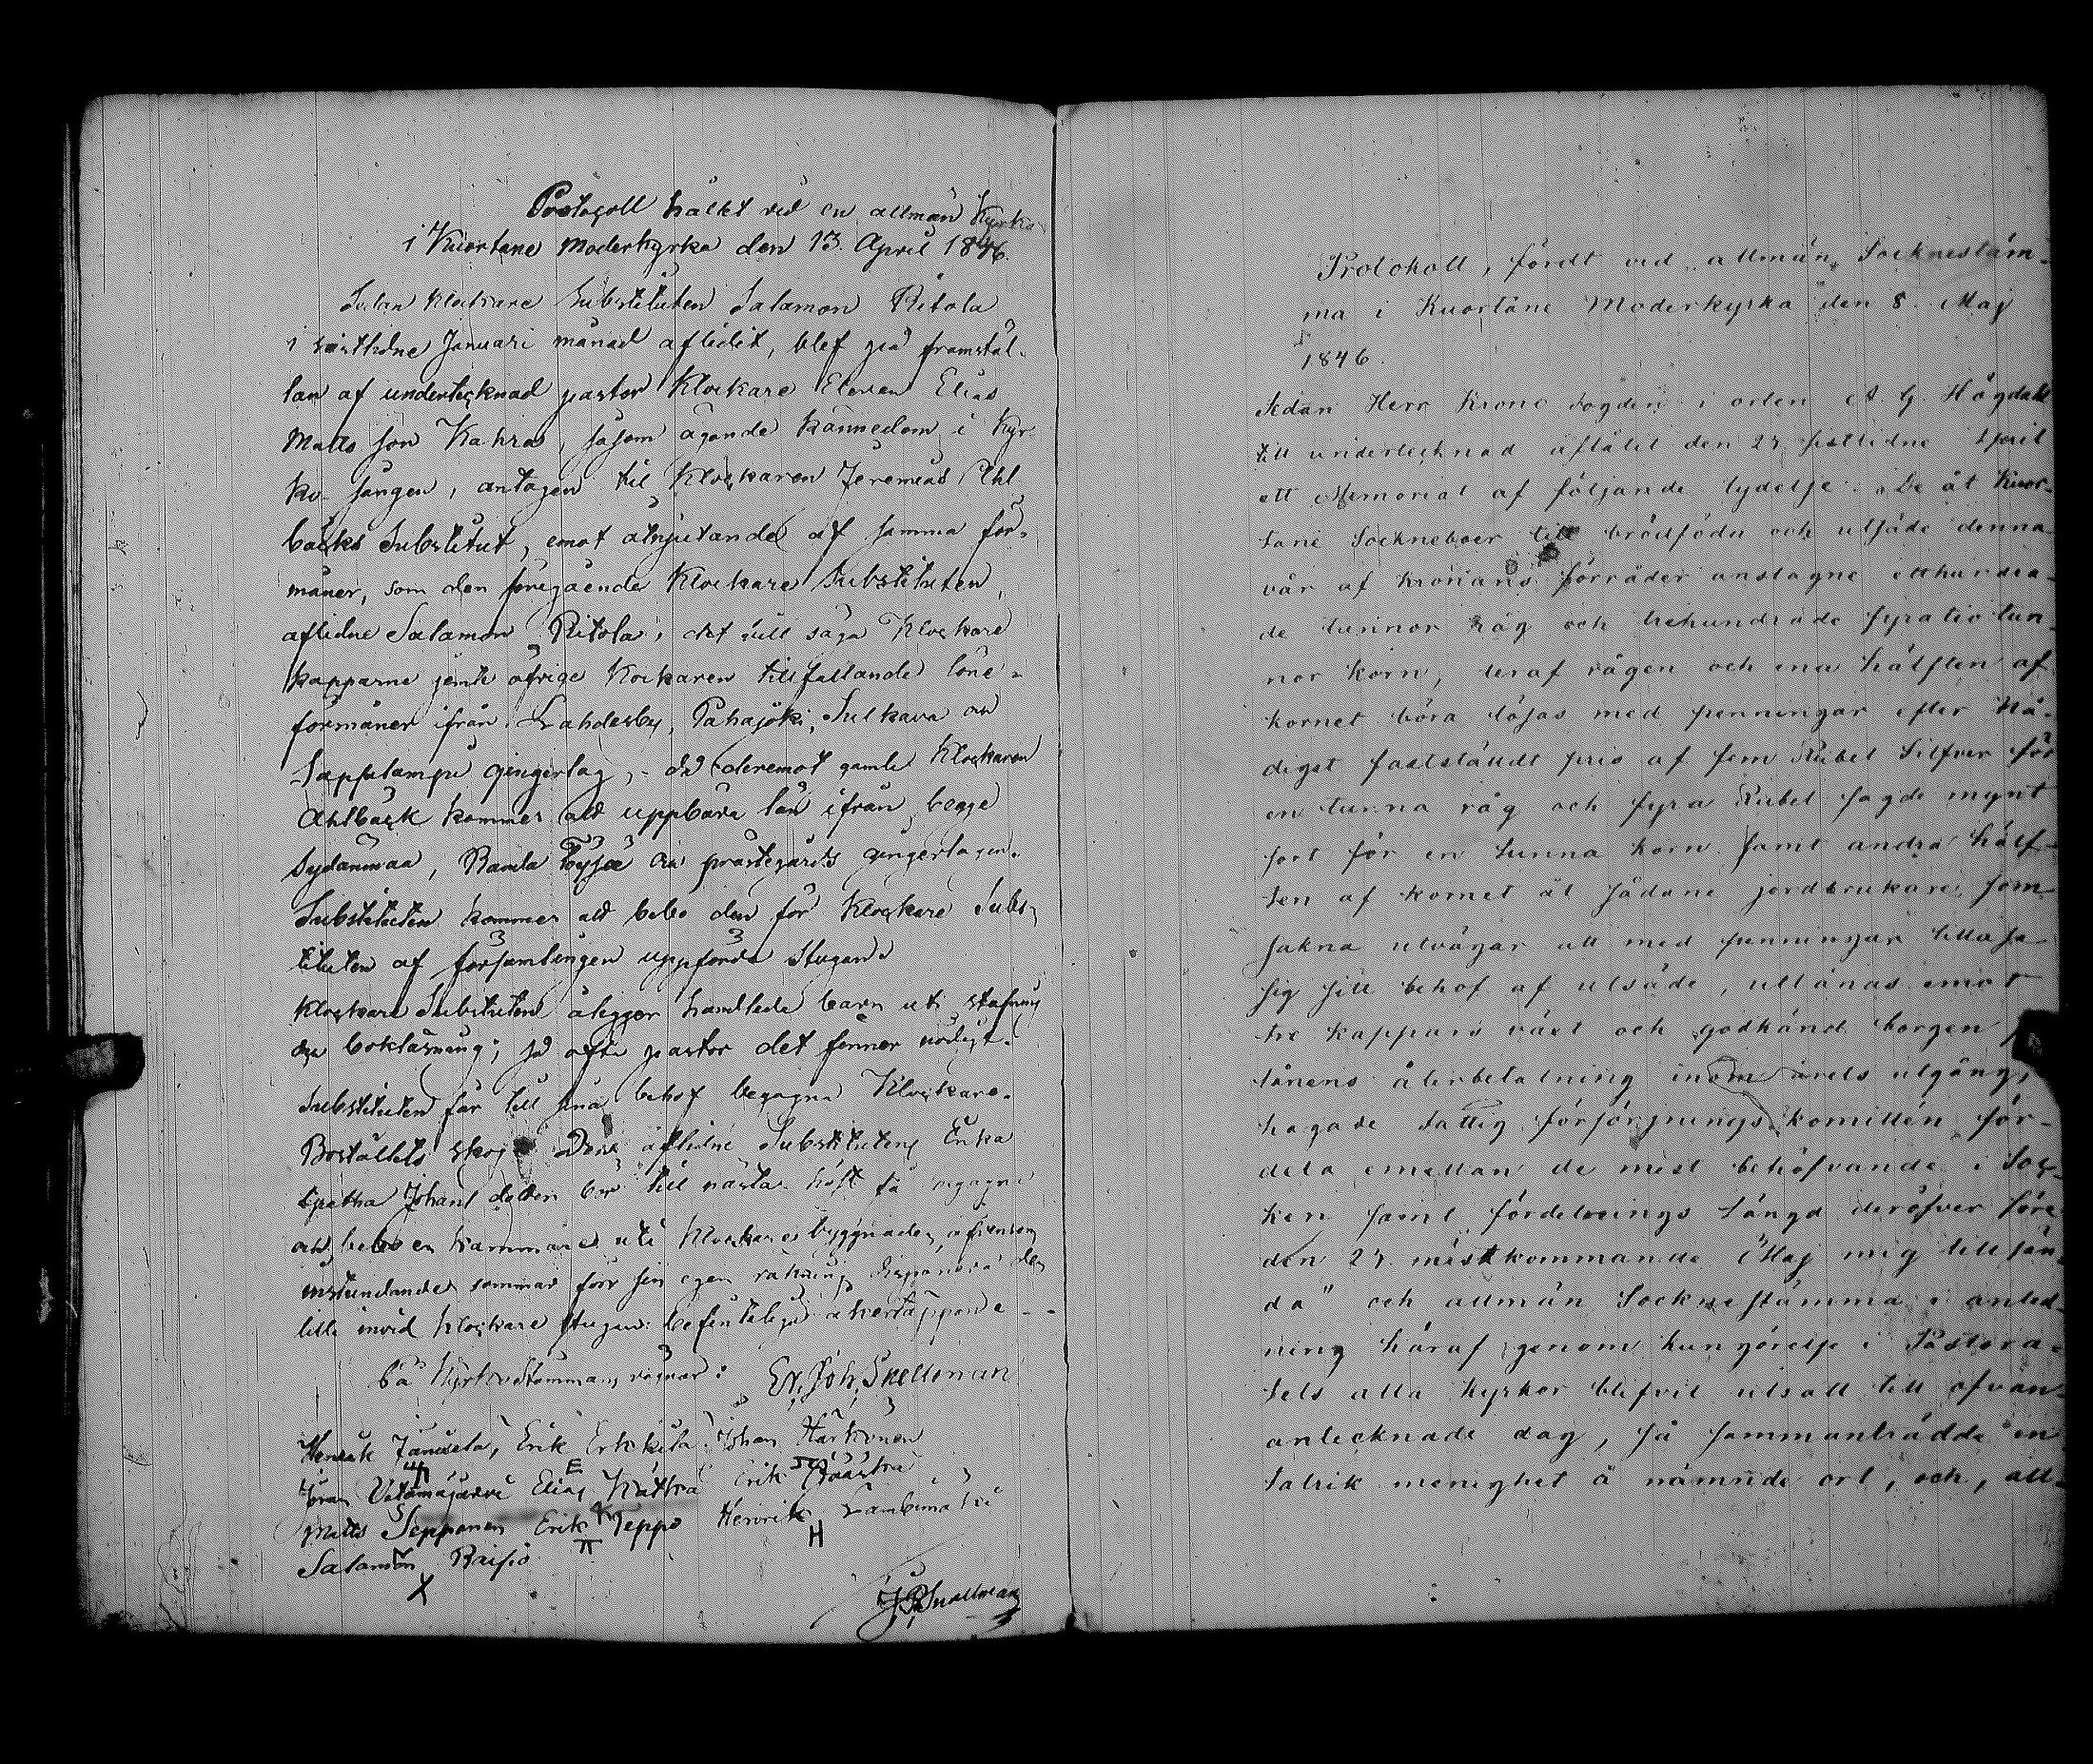 Protocoll hållet vid en allmän Kyrko
i Kuortane Moderkyrka den 13. April 1846.
Sedan Klockare Substituten Salamon Ritola
i sistlidne Januari månad aflidit, blef på framstäl-
lan af undertecknad pastor Klockare Eleven Elias
Matts son Kahra, såsom ägande kännedom i Kyr-
ko-sången, antagen til Klockaren Jeremias Ahl
bäcks Substitut, emot åtnjutande af samma för-
måner, som den föregående Klockare Substituten,
aflidne Salamon Ritola, det vill säga Klockare
kapparne jemte öfrige Klockaren tillfallande löne-
förmåner ifrån Lahdesby, Pahajoki, Sulkava och
Sapsalampi gingerlag, - då deremot gamle Klockaren
Ahlbäck kommer att uppbära lön ifrån begge
Sydänmaa, Ranta Töysä och prästegårds gingerlagen.
Substituten kommer att bebo den för Klockare Subs-
tituten af församlingen uppförda Stugan.
Klockare Substituten åligger handleda barn uti stafning
och bokläsning; så ofta pastor det finner nödigt.
Substituten får till sina behof begagna Klockare-
Boställets skog. Den aflidne Substitutens Enka
Agatha Johans dotter bör till nästa höst få begagna
och bebo en kammare uti Klockare byggnaden, äfvensom
instundande sommar för sin egen räkning disponera den
lilla invid Klockare stugan befinteliga åkertäppan.
På Kyrkostämmans vägnar: Er. Joh. Snellman
Henrik Jämsela, Erik Erkkila Johan Härkönen
Jöran Vetämäjärvi Elias Kahra Erik Pöästra
Matts Sepponen Erik Seppo Henrik Lambimäki
Salamon Raisio
X H
J R Snellman
Protokoll, fördt vid allmän Socknestäm-
ma i Kuortane Moderkyrka den 8. Maj
1846.
Sedan Herr Krono Fogden i orten A. G. Högdahl
till undertecknad aflåtit den 27 sistlidne April
ett Memorial af följande lydelse: "De åt Kuor-
tane Sockneboer till brödföda och utsäde denna
vår af Kronans förråder anslagne etthundra-
de tunnor råg och trehundrade fyratio tun-
nor korn, deraf rågen och ena hälften af
kornet böra lösas med penningar efter Nå-
digst fastställdt pris af fem Rubel Silfver för
en tunna råg och fyra Rubel sagde mynt
sort för en tunna korn samt andra hälf-
ten af kornet åt sådane jordbrukare som
sakna utvägar att med penningar tillösa
sig sitt behof af utsäde, utlånas emot
tre kappars växt och godkänd borgen för
lånens återbetalning inom årets utgång,
hagade Fattig försörjnings komittén för-
dela emellan de mest behöfvande i Soc-
ken samt fördelnings längd deröfver före
den 27. nästkommande Maj mig tillsän-
da" och allmän Socknestämma i anled-
ning häraf genom kungörelse i Pastora-
tets alla kyrkor blifvit utsatt till ofvan-
antecknade dag, så sammanträdde en
talrik menighet å nämnde ort, och, att